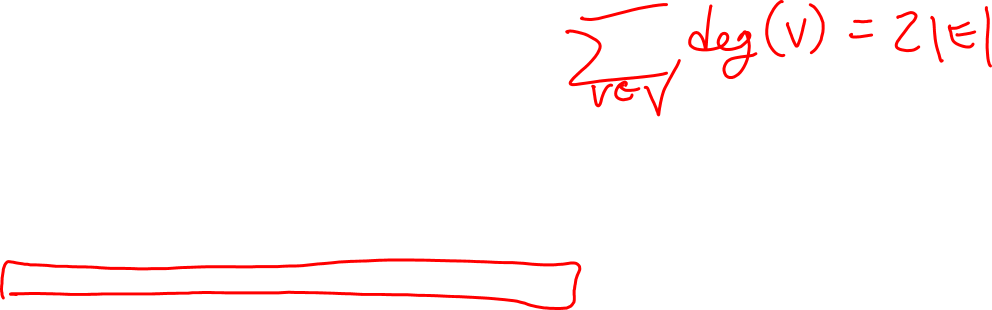 ∑_{v∈V} deg(v) = 2|E|